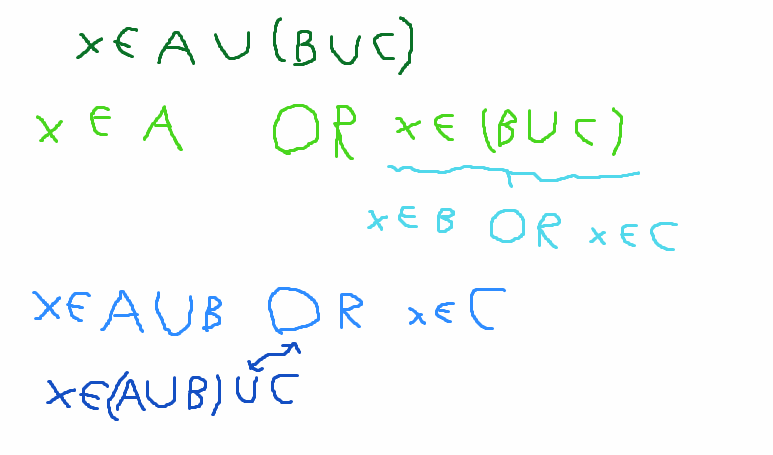 x∈A∪(B∪C)
x∈A OR x∈(B∪C)
x∈B OR x∈C
x∈A∪B OR x∈C
x∈(A∪B)∪C